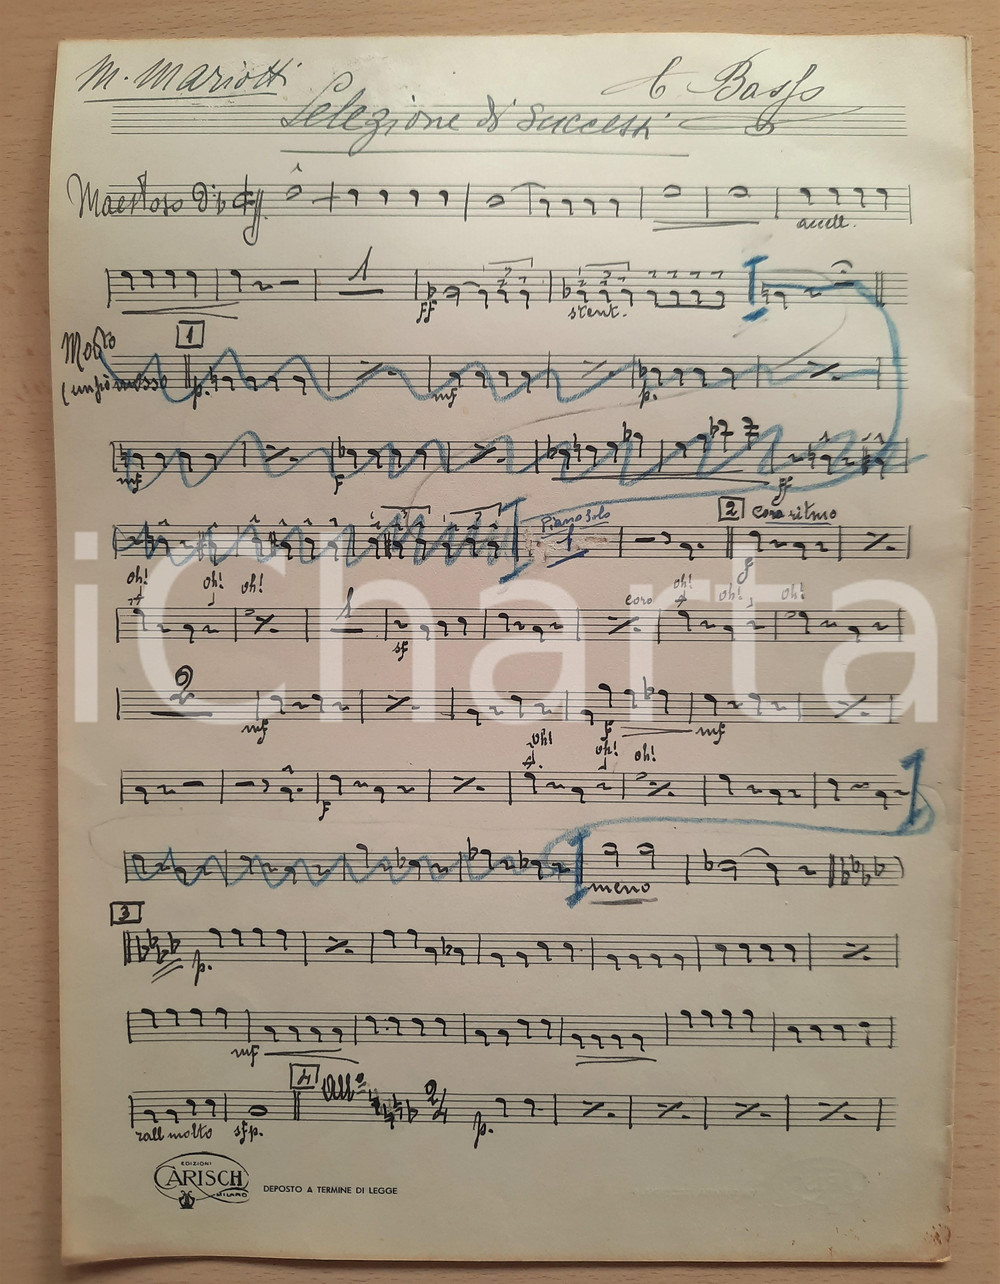 M. Mariotti
C. Basso
Selezione di Successi
Maestoso
accell.
1
ff
stent.
Mosso
(un più mosso
1
p.
mf
p.
mf
f
ff
piano solo
1
2
coro ritmo
f
oh!
oh!
oh!
1
sf
coro
oh!
oh!
oh!
2
mf
f
mf
f
oh!
oh!
oh!
meno
3
p.
mf
4
All°
2/4
p.
rall molto
sfp.
EDIZIONI
CARISCH
MILANO
DEPOSTO A TERMINE DI LEGGE
iCharta